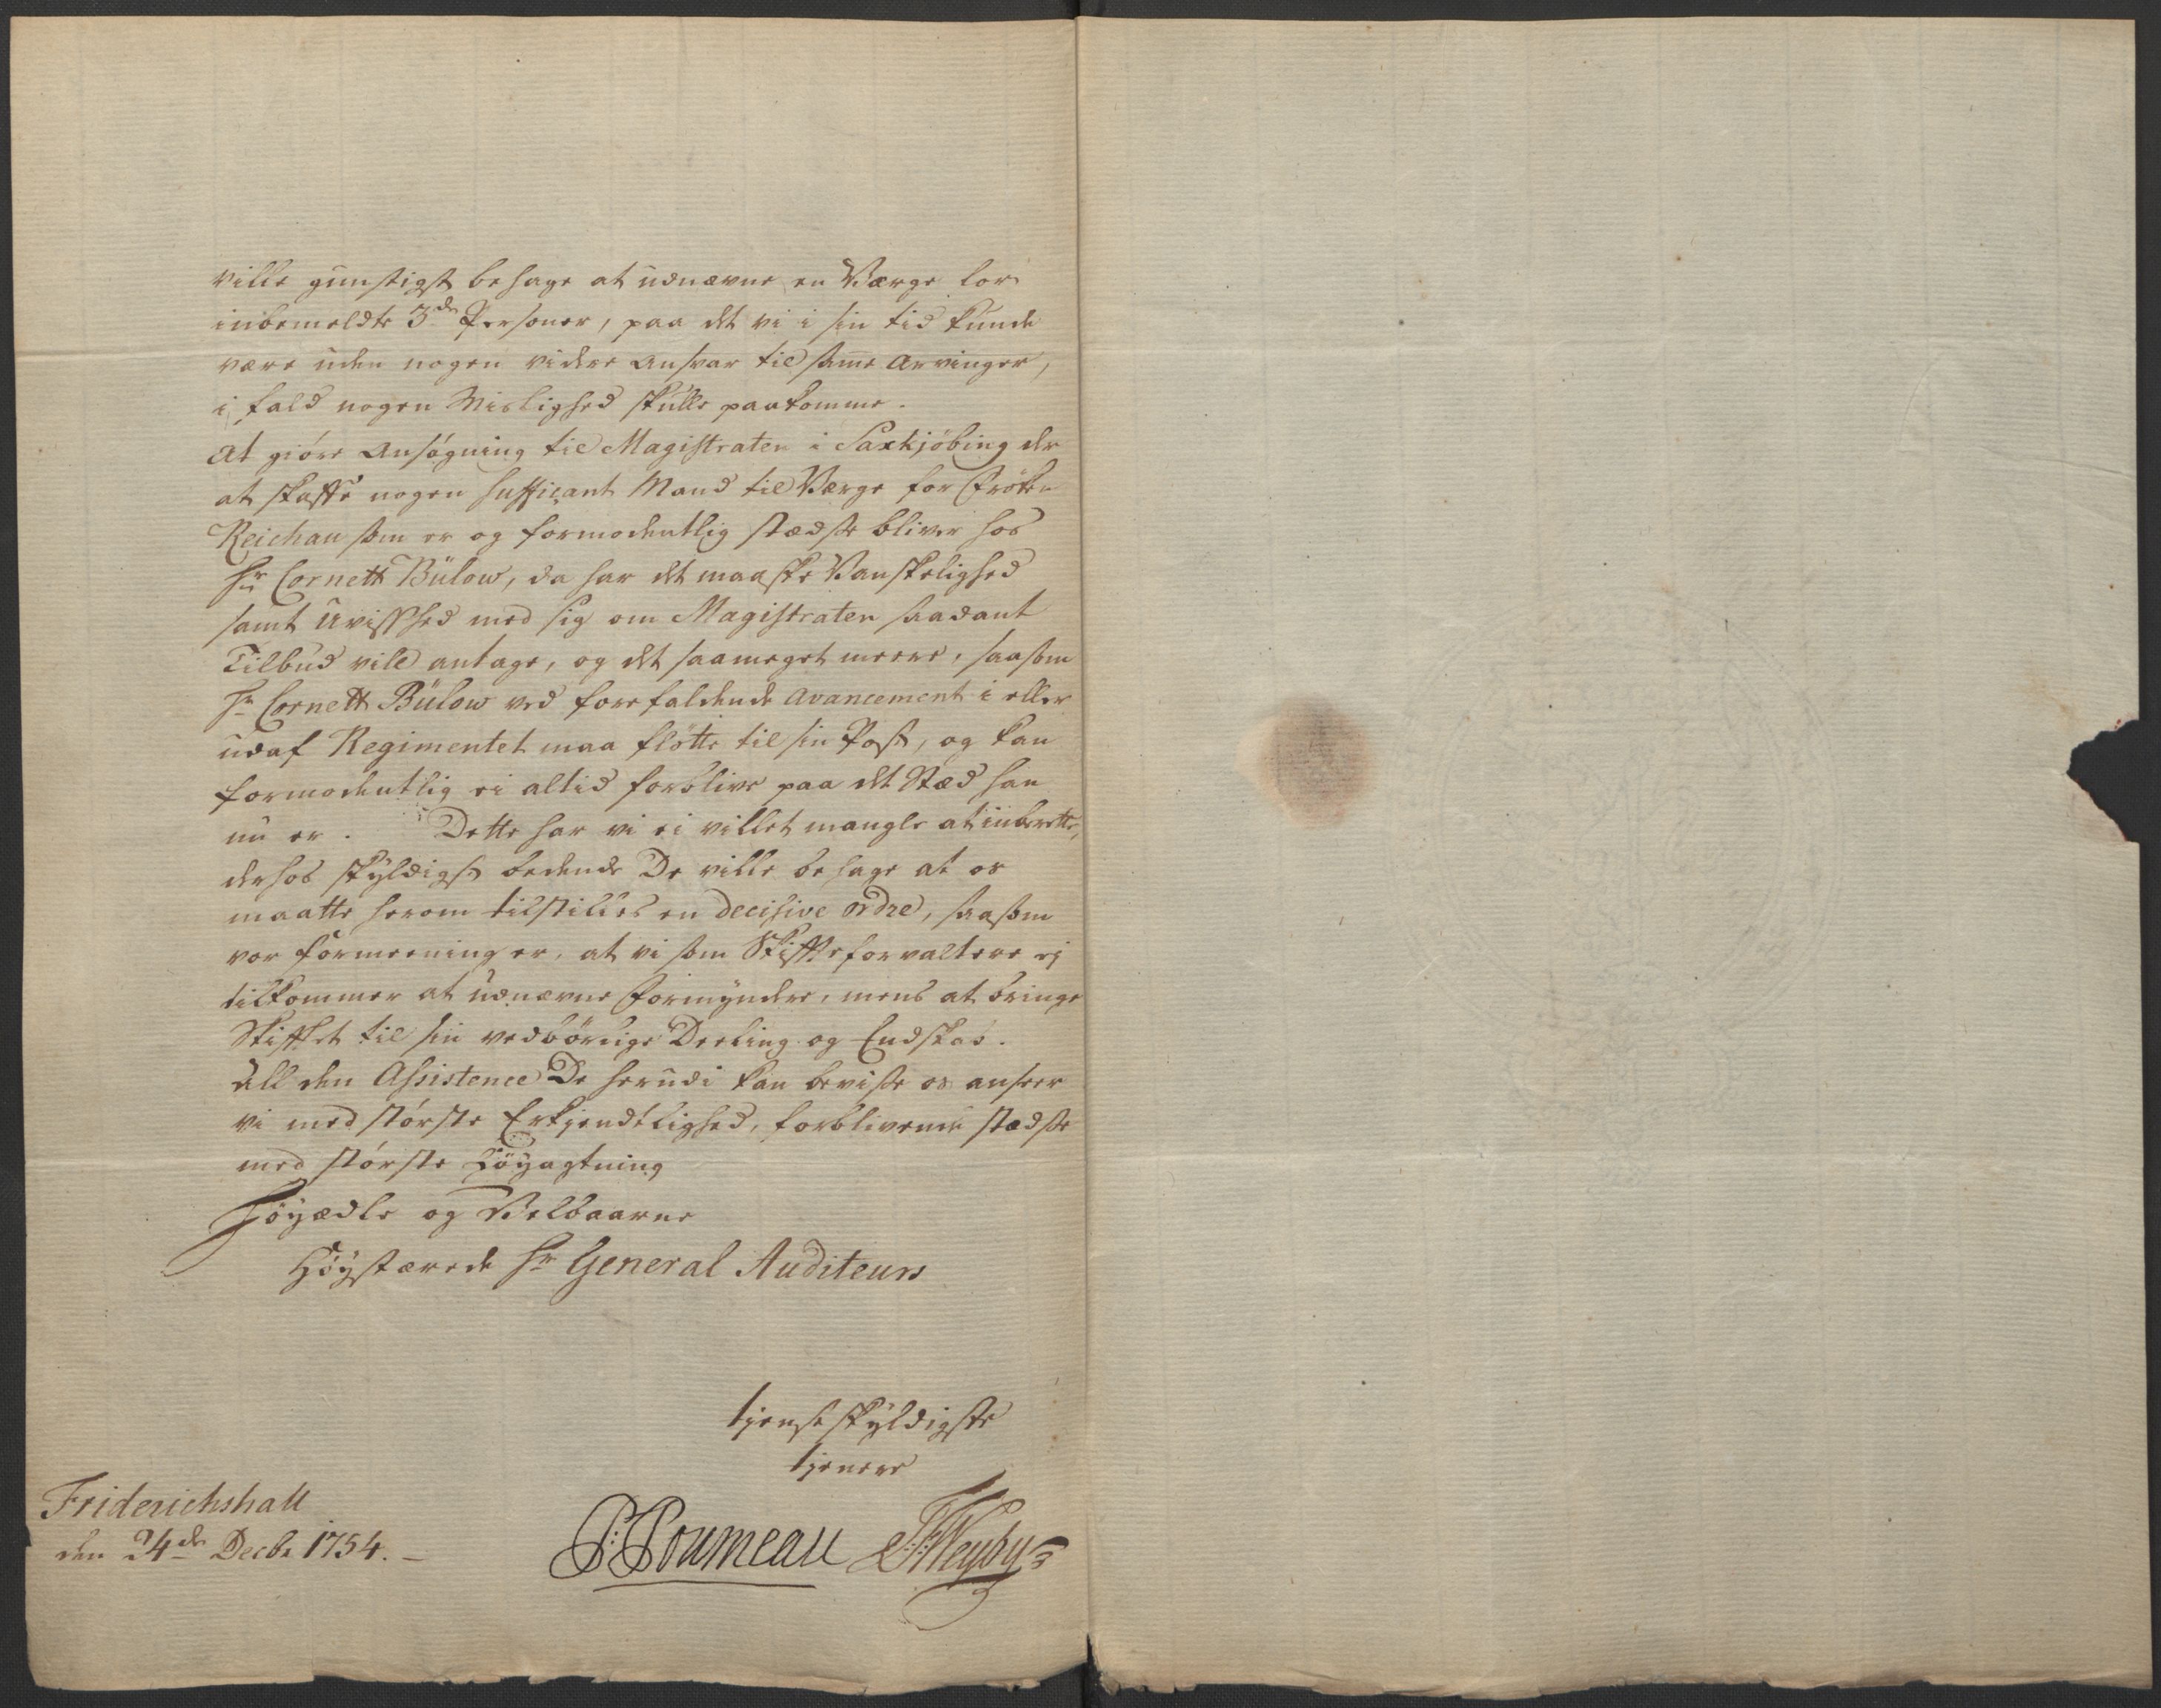 ville gunstigst behage at udnævne en Værge for
indbemeldte 3de Personer, paa det vi i sin tid kunde
være uden nogen videre ansvar til samme arvinger,
i fald nogen Mislighed skulle paakomme.
At giöre ansögning til Magistraten i Saxkjöbing der
at skaffe nogen suffiçant Mand til Værge for Fröken
Reichau som er og formodentlig stædse bliver hos
Hr Cornett Bülow, da har det maaske Vanskelighed
samt uvisshed med sig om Magistraten saadant
Tilbud vil antage, og det saameget meere, saasom
Hr Cornett Bülow ved forefaldende avancement i eller
udaf Regimentet maa flötte til sin Post, og kan
formodentlig ei altid forblive paa det Stæd han
nu er. Dette har vi ei villet mangle at indberette,
derhos skyldigst bedende De ville behage at os
maatte herom tilstilles en decisive ordre, saasom
vor formeening er, at vi som Skifteforvaltere ej
tilkommer at udnævne Formyndere, mens at bringe
Skiftet til sin vedbörlige Deeling og Endskab.
All den Assistence De herudi kan beviise os anseer
vi med störste Erkjendtlighed, forblivende stædse
med störste Höyagtning
Höyædle og Velbaarne
Höystærede Hr General Auditeurs
tjenstskyldigste
tjenere
Friderichshall
den 24de Decbr 1754.
P: Poumeau T: F: Weyby